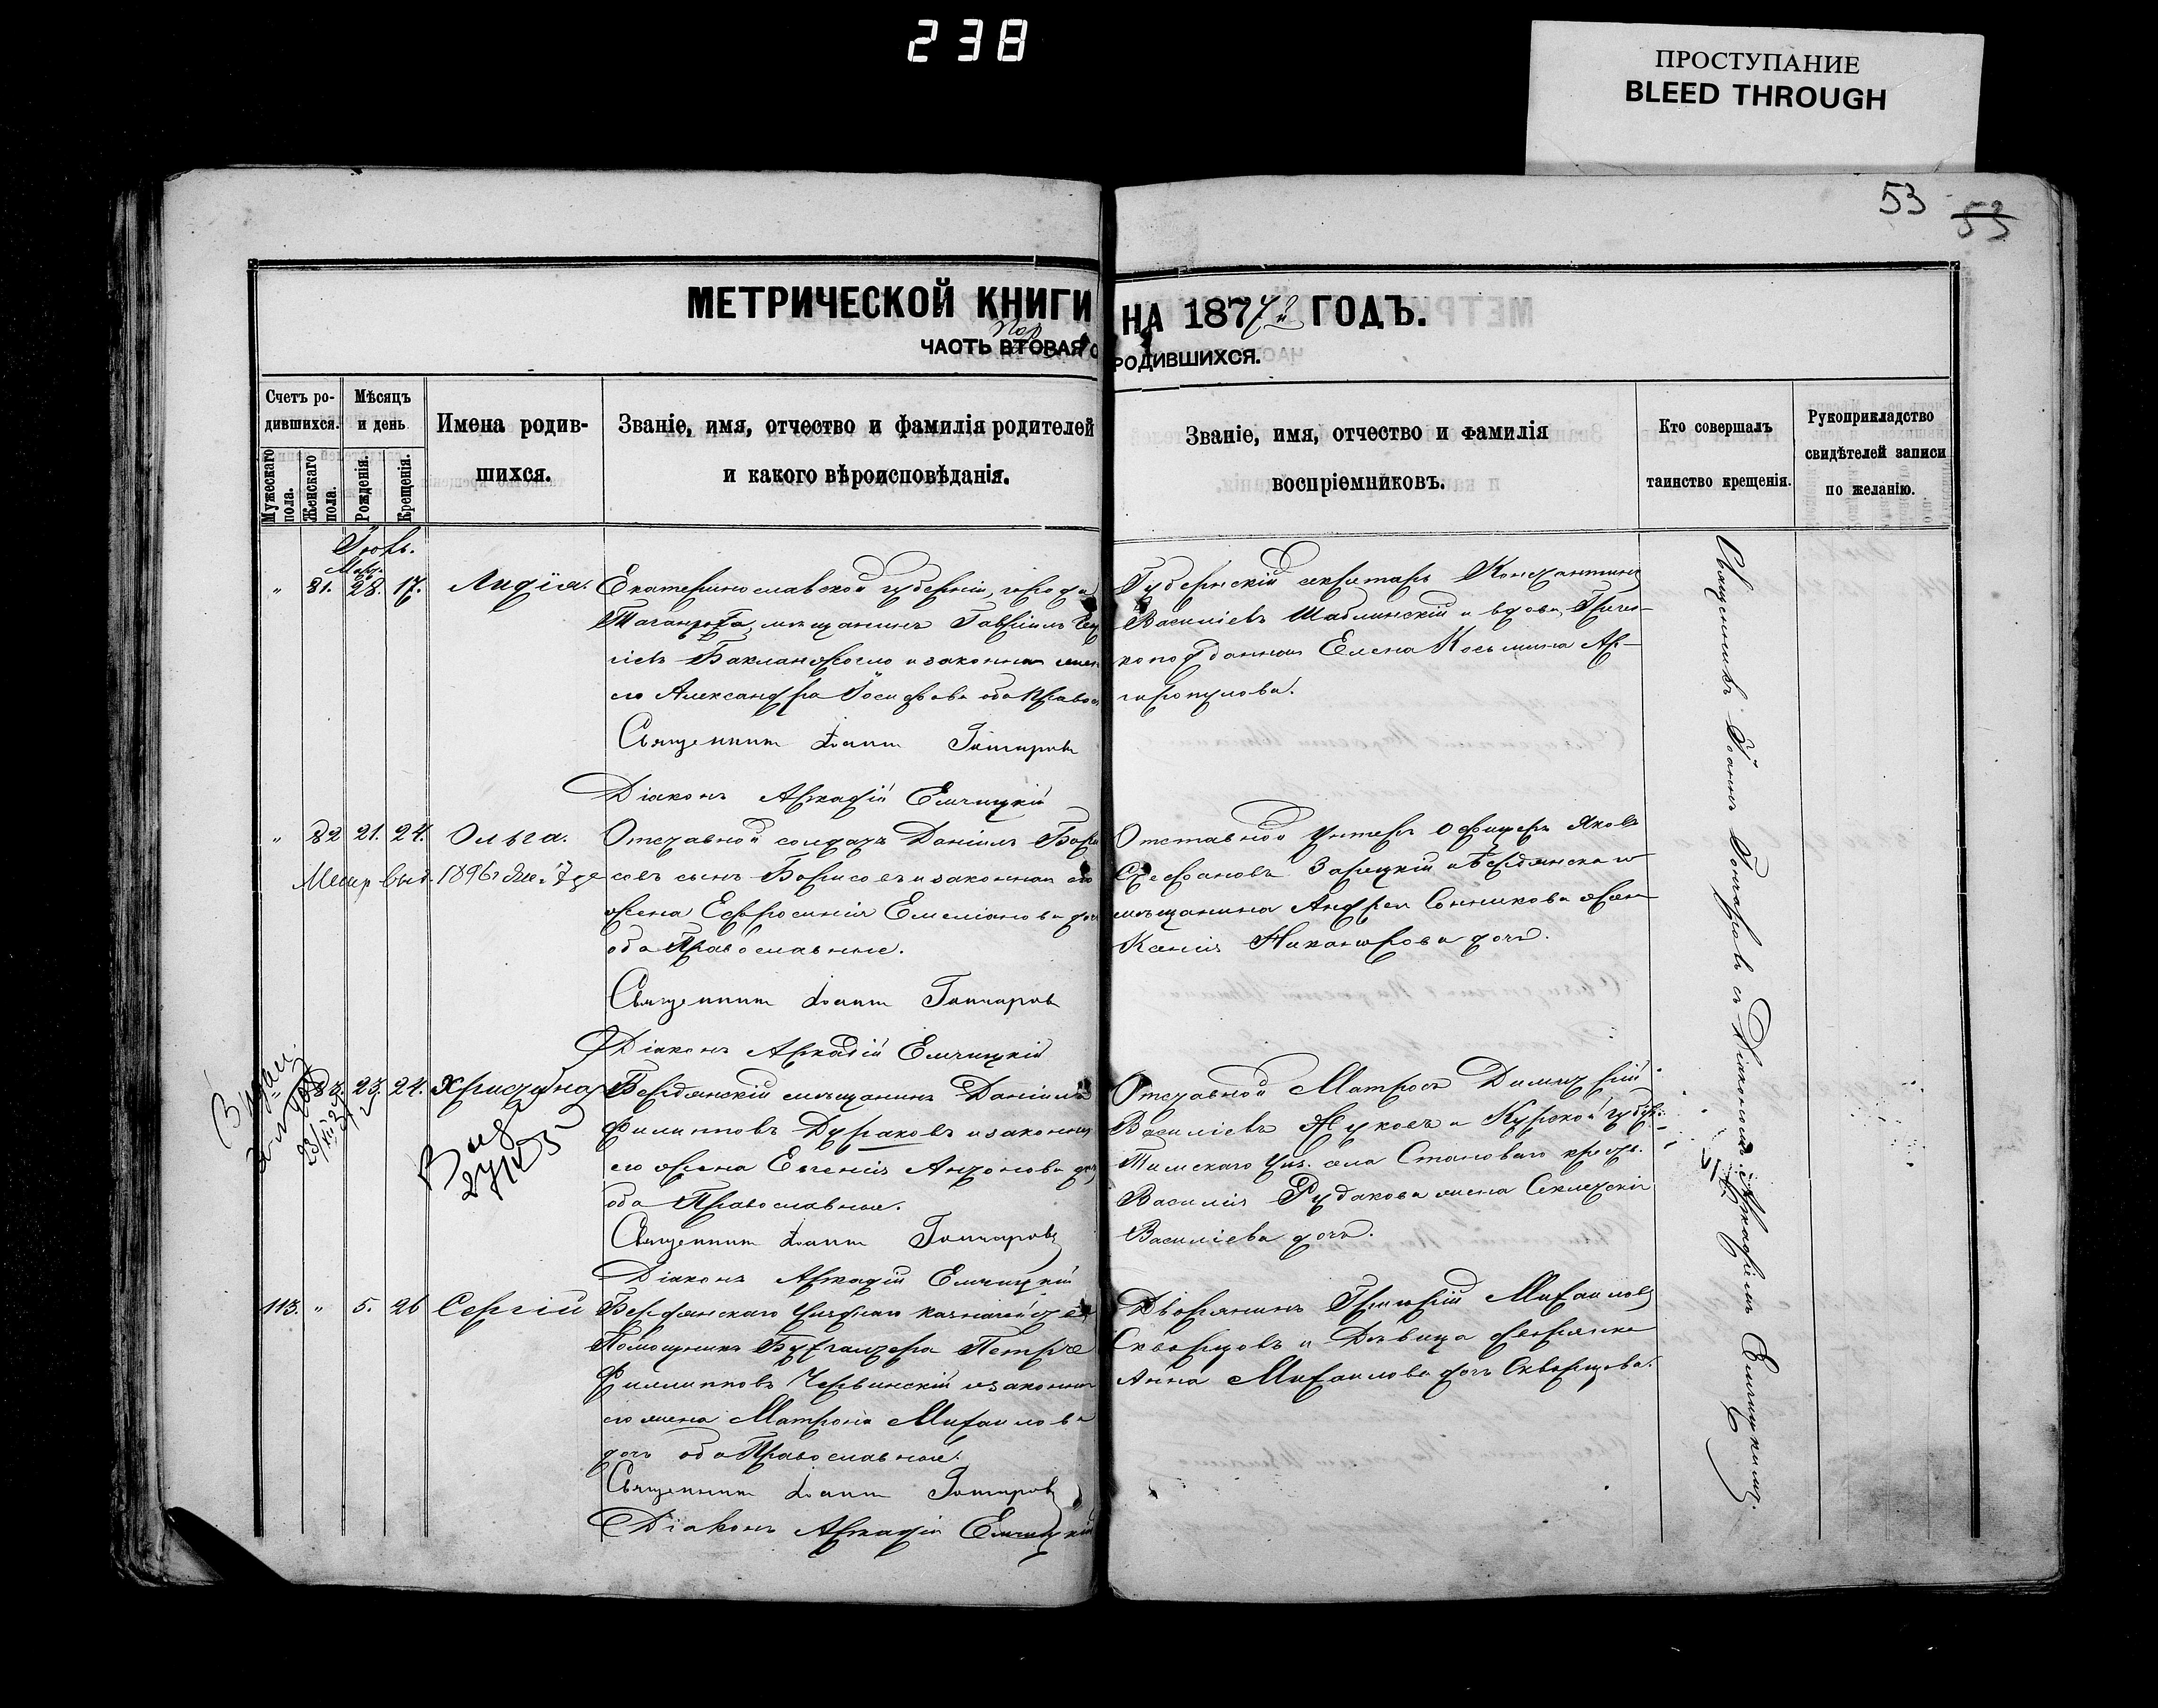 238
ПРОСТУПАНИЕ
BLEED THROUGH
53 53
МЕТРИЧЕСКОЙ КНИГИ НА 1874й ГОДЪ.
ЧАСТЬ ВТОРАЯ О РОДИВШИХСЯ.
Счетъ ро-
дившихся.
Мужескаго пола.
Женскаго пола.
Мѣсяцъ
и день
Рожденія.
Крещенія.
Имена родив-
шихся.
Званіе, имя, отчество и фамилія родителей
и какого вѣроисповѣданія.
Званіе, имя, отчество и фамилія
воспріемниковъ.
Кто совершалъ
таинство крещенія.
Рукоприкладство
свидѣтелей записи
по желанію.
" 81. 28. 17. Лидія.
Екатеринославской губерніи, города
Таганрога, мѣщанинъ Гавріилъ
его Александра Іосифова оба Правос
Священникъ Іоаннъ Гончаровъ
Діаконъ Аркадій Емчицкій
Губернскій секретарь Константинъ
Василіевъ Шаблинскій и вдова, Грече-
коподданная Елена Косьмина Ар-
гиропулова.
" 82 21. 24. Ольга.
1896
Отставной солдатъ Даніилъ Бори
совъ сынъ Борисовъ и законная его
жена Ефросинія Емеліанова доч
оба Православные.
Священникъ Іоаннъ Гончаровъ
Діаконъ Аркадій Емчицкій
Отставной Унтеръ Офицеръ Яковъ
Стефановъ Зарецкій и Бердянскаго
мѣщанина Андрея Сонникова жена
Ксенія Никанорова дочь.
83. 23. 24. Христина
Бердянскій мѣщанинъ Даніилъ
Филипповъ Дураковъ и законная
его жена Евгенія Антонова доч
оба Православные.
Священникъ Іоаннъ Гончаровъ
Діаконъ Аркадій Емчицкій
Отставной Матросъ Димитрій
Василіевъ Жуковъ и Курской губер.
Тимскаго уѣз. села Становаго крест.
Василія Рудакова жена
Василіева дочь.
113. " 5. 26 Сергій
Бердянскаго Уѣзднаго казначейства
Помощникъ Бухгалтера Петръ
Филипповъ Червинскій и законная
его жена Матрона Михаилова
дочь оба Православные.
Священникъ Іоаннъ Гончаровъ
Діаконъ Аркадій Емчицкій
Дворянинъ Григорій Михаиловъ
Скворцовъ и Дѣвица дворянка
Анна Михаилова дочь Скворцова.
Священникъ Іоаннъ Гончаровъ съ Діакономъ Аркадіемъ Емчицкимъ.